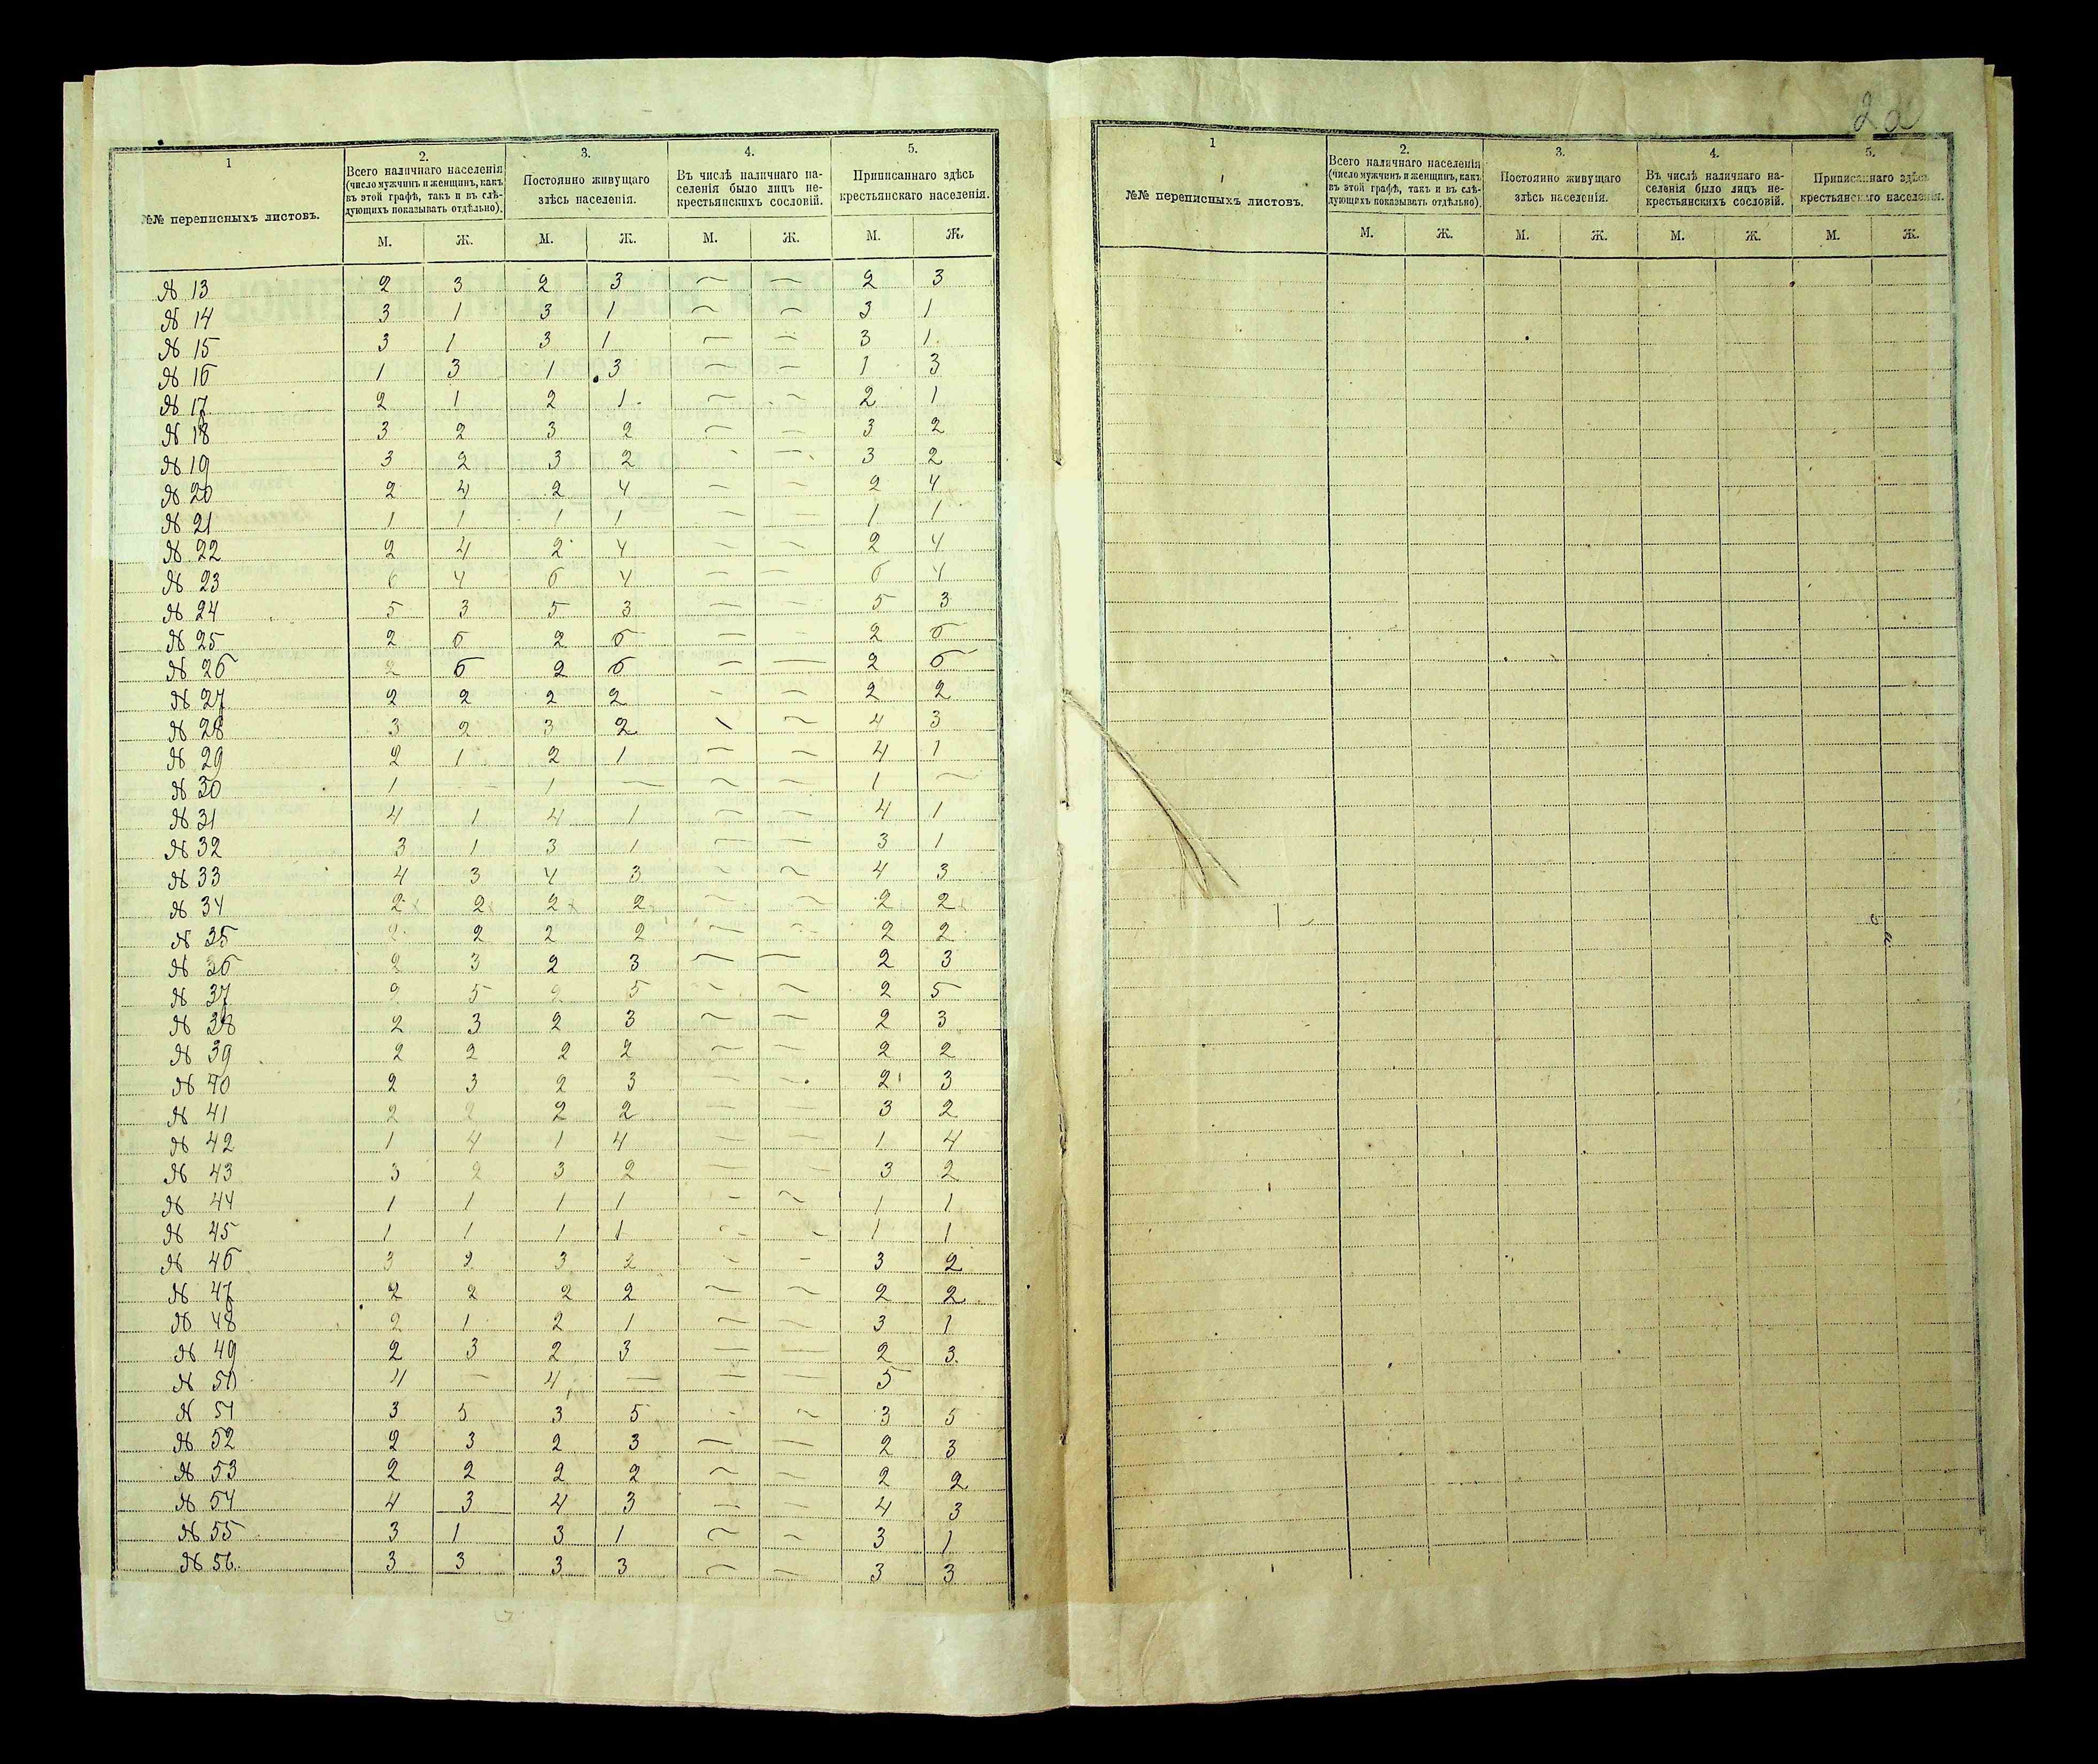 1
2.
Всего наличнаго населенія
(число мужчинъ и женщинъ, какъ
въ этой графѣ, такъ и въ слѣ-
дующихъ показывать отдѣльно).
3.
Постоянно живущаго
здѣсь населенія.
4.
Въ числѣ наличнаго на-
селенія было лицъ не-
крестьянскихъ сословій.
5.
Приписаннаго здѣсь
крестьянскаго населенія.
№№ переписныхъ листовъ.
М. Ж. М. Ж. М. Ж. М. Ж.
№ 13 2 3 2 3 — — 2 3
№ 14 3 1 3 1 — — 3 1
№ 15 3 1 3 1 — — 3 1
№ 16 1 3 1 3 — — 1 3
№ 17 2 1 2 1 — — 2 1
№ 18 3 2 3 2 — — 3 2
№ 19 3 2 3 2 — — 3 2
№ 20 2 4 2 4 — — 2 4
№ 21 1 1 1 1 — — 1 1
№ 22 2 4 2 4 — — 2 4
№ 23 6 4 6 4 — — 6 4
№ 24 5 3 5 3 — — 5 3
№ 25 2 6 2 6 — — 2 6
№ 26 2 6 2 6 — — 2 6
№ 27 2 2 2 2 — — 2 2
№ 28 3 2 3 2 — — 4 3
№ 29 2 1 2 1 — — 4 1
№ 30 1 — 1 — — — 1 —
№ 31 4 1 4 1 — — 4 1
№ 32 3 1 3 1 — — 3 1
№ 33 4 3 4 3 — — 4 3
№ 34 2 2 2 2 — — 2 2
№ 35 2 2 2 2 — — 2 2
№ 36 2 3 2 3 — — 2 3
№ 37 2 5 2 5 — — 2 5
№ 38 2 3 2 3 — — 2 3
№ 39 2 2 2 2 — — 2 2
№ 40 2 3 2 3 — — 2 3
№ 41 2 2 2 2 — — 3 2
№ 42 1 4 1 4 — — 1 4
№ 43 3 2 3 2 — — 3 2
№ 44 1 1 1 1 — — 1 1
№ 45 1 1 1 1 — — 1 1
№ 46 3 2 3 2 — — 3 2
№ 47 2 2 2 2 — — 2 2
№ 48 2 1 2 1 — — 3 1
№ 49 2 3 2 3 — — 2 3
№ 50 4 — 4 — — — 5
№ 51 3 5 3 5 — — 3 5
№ 52 2 3 2 3 — — 2 3
№ 53 2 2 2 2 — — 2 2
№ 54 4 3 4 3 — — 4 3
№ 55 3 1 3 1 — — 3 1
№ 56 3 3 3 3 — — 3 3
1
2.
Всего наличнаго населенія
(число мужчинъ и женщинъ, какъ
въ этой графѣ, такъ и въ слѣ-
дующихъ показывать отдѣльно).
3.
Постоянно живущаго
здѣсь населенія.
4.
Въ числѣ наличнаго на-
селенія было лицъ не-
крестьянскихъ сословій.
5.
Приписаннаго здѣсь
крестьянскаго населенія.
№№ переписныхъ листовъ.
М. Ж. М. Ж. М. Ж. М. Ж.